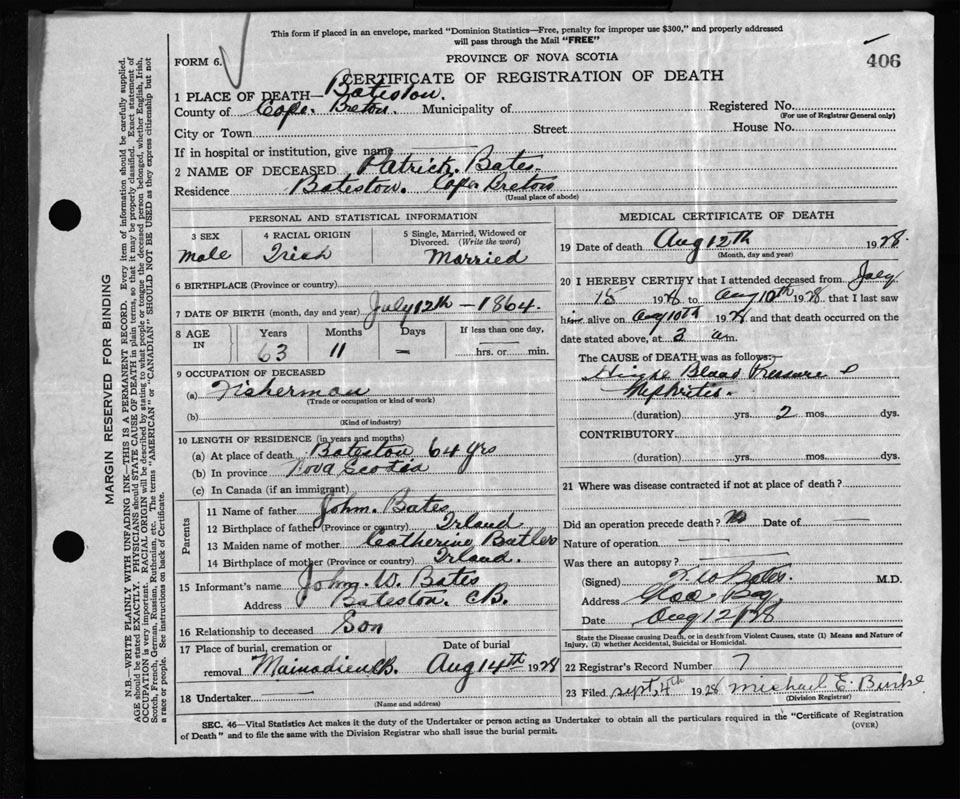 This form if placed in an envelope, marked "Dominion Statistics—Free, penalty for improper use $300," and properly addressed
will pass through the Mail "FREE"
406
FORM 6.
PROVINCE OF NOVA SCOTIA
CERTIFICATE OF REGISTRATION OF DEATH
1 PLACE OF DEATH— Bateston.
County of Cape Breton Municipality of Registered No.
(For use of Registrar General only)
City or Town Street House No.
If in hospital or institution, give name
2 NAME OF DECEASED Patrick Bates.
Residence Bateston. Cape Breton
(Usual place of abode)
PERSONAL AND STATISTICAL INFORMATION
3 SEX 4 RACIAL ORIGIN 5 Single, Married, Widowed or
Divorced. (Write the word)
male Irish Married
6 BIRTHPLACE (Province or country)
7 DATE OF BIRTH (month, day and year) July 12th – 1864.
8 AGE IN Years Months Days If less than one day,
63 11 — hrs. or min.
9 OCCUPATION OF DECEASED
(a) Fisherman
(Trade or occupation or kind of work)
(b)
(Kind of industry)
10 LENGTH OF RESIDENCE (in years and months)
(a) At place of death Bateston 64 yrs
(b) In province Nova Scotia
(c) In Canada (if an immigrant)
Parents
11 Name of father John. Bates
12 Birthplace of father (Province or country) Irland
13 Maiden name of mother Catherine Butler
14 Birthplace of mother (Province or country) Irland.
15 Informant's name John. W. Bates
Address Bateston. CB.
16 Relationship to deceased Son
17 Place of burial, cremation or Date of burial
removal Mainadieu CB. Aug 14th 1928
18 Undertaker
(Name and address)
MEDICAL CERTIFICATE OF DEATH
19 Date of death Aug 12th 1928.
(Month, day and year)
20 I HEREBY CERTIFY that I attended deceased from July
15 1928 to Aug 10th 1928. that I last saw
him alive on Aug 10th 1928 and that death occurred on the
date stated above, at 3 am.
The CAUSE OF DEATH was as follows:—
Blood Pressure
Nephritis.
(duration) yrs. 2 mos. dys.
CONTRIBUTORY.
(duration) yrs. mos. dys.
21 Where was disease contracted if not at place of death?
Did an operation precede death? No Date of
Nature of operation
Was there an autopsy?
(Signed) Bates. M.D.
Address Bay
Date Aug 12/28
State the Disease causing Death, or in death from Violent Causes, state (1) Means and Nature of
Injury, (2) whether Accidental, Suicidal or Homicidal.
22 Registrar's Record Number 7
23 Filed Sept, 4th 1928 Michael E. Burke
(Division Registrar)
SEC. 46—Vital Statistics Act makes it the duty of the Undertaker or person acting as Undertaker to obtain all the particulars required in the "Certificate of Registration
of Death" and to file the same with the Division Registrar who shall issue the burial permit.
(OVER)
MARGIN RESERVED FOR BINDING
N.B.—WRITE PLAINLY WITH UNFADING INK—THIS IS A PERMANENT RECORD. Every item of information should be carefully supplied.
AGE should be stated EXACTLY. PHYSICIANS should STATE CAUSE OF DEATH in plain terms, so that it may be properly classified. Exact statement of
OCCUPATION is very important. RACIAL ORIGIN will be described by stating to what people or tongue the deceased person belonged, whether English, Irish,
Scotch, French, German, Russian, Ruthenian, etc. The terms "AMERICAN" or "CANADIAN" SHOULD NOT BE USED as they express citizenship but not
a race or people. See instructions on back of Certificate.